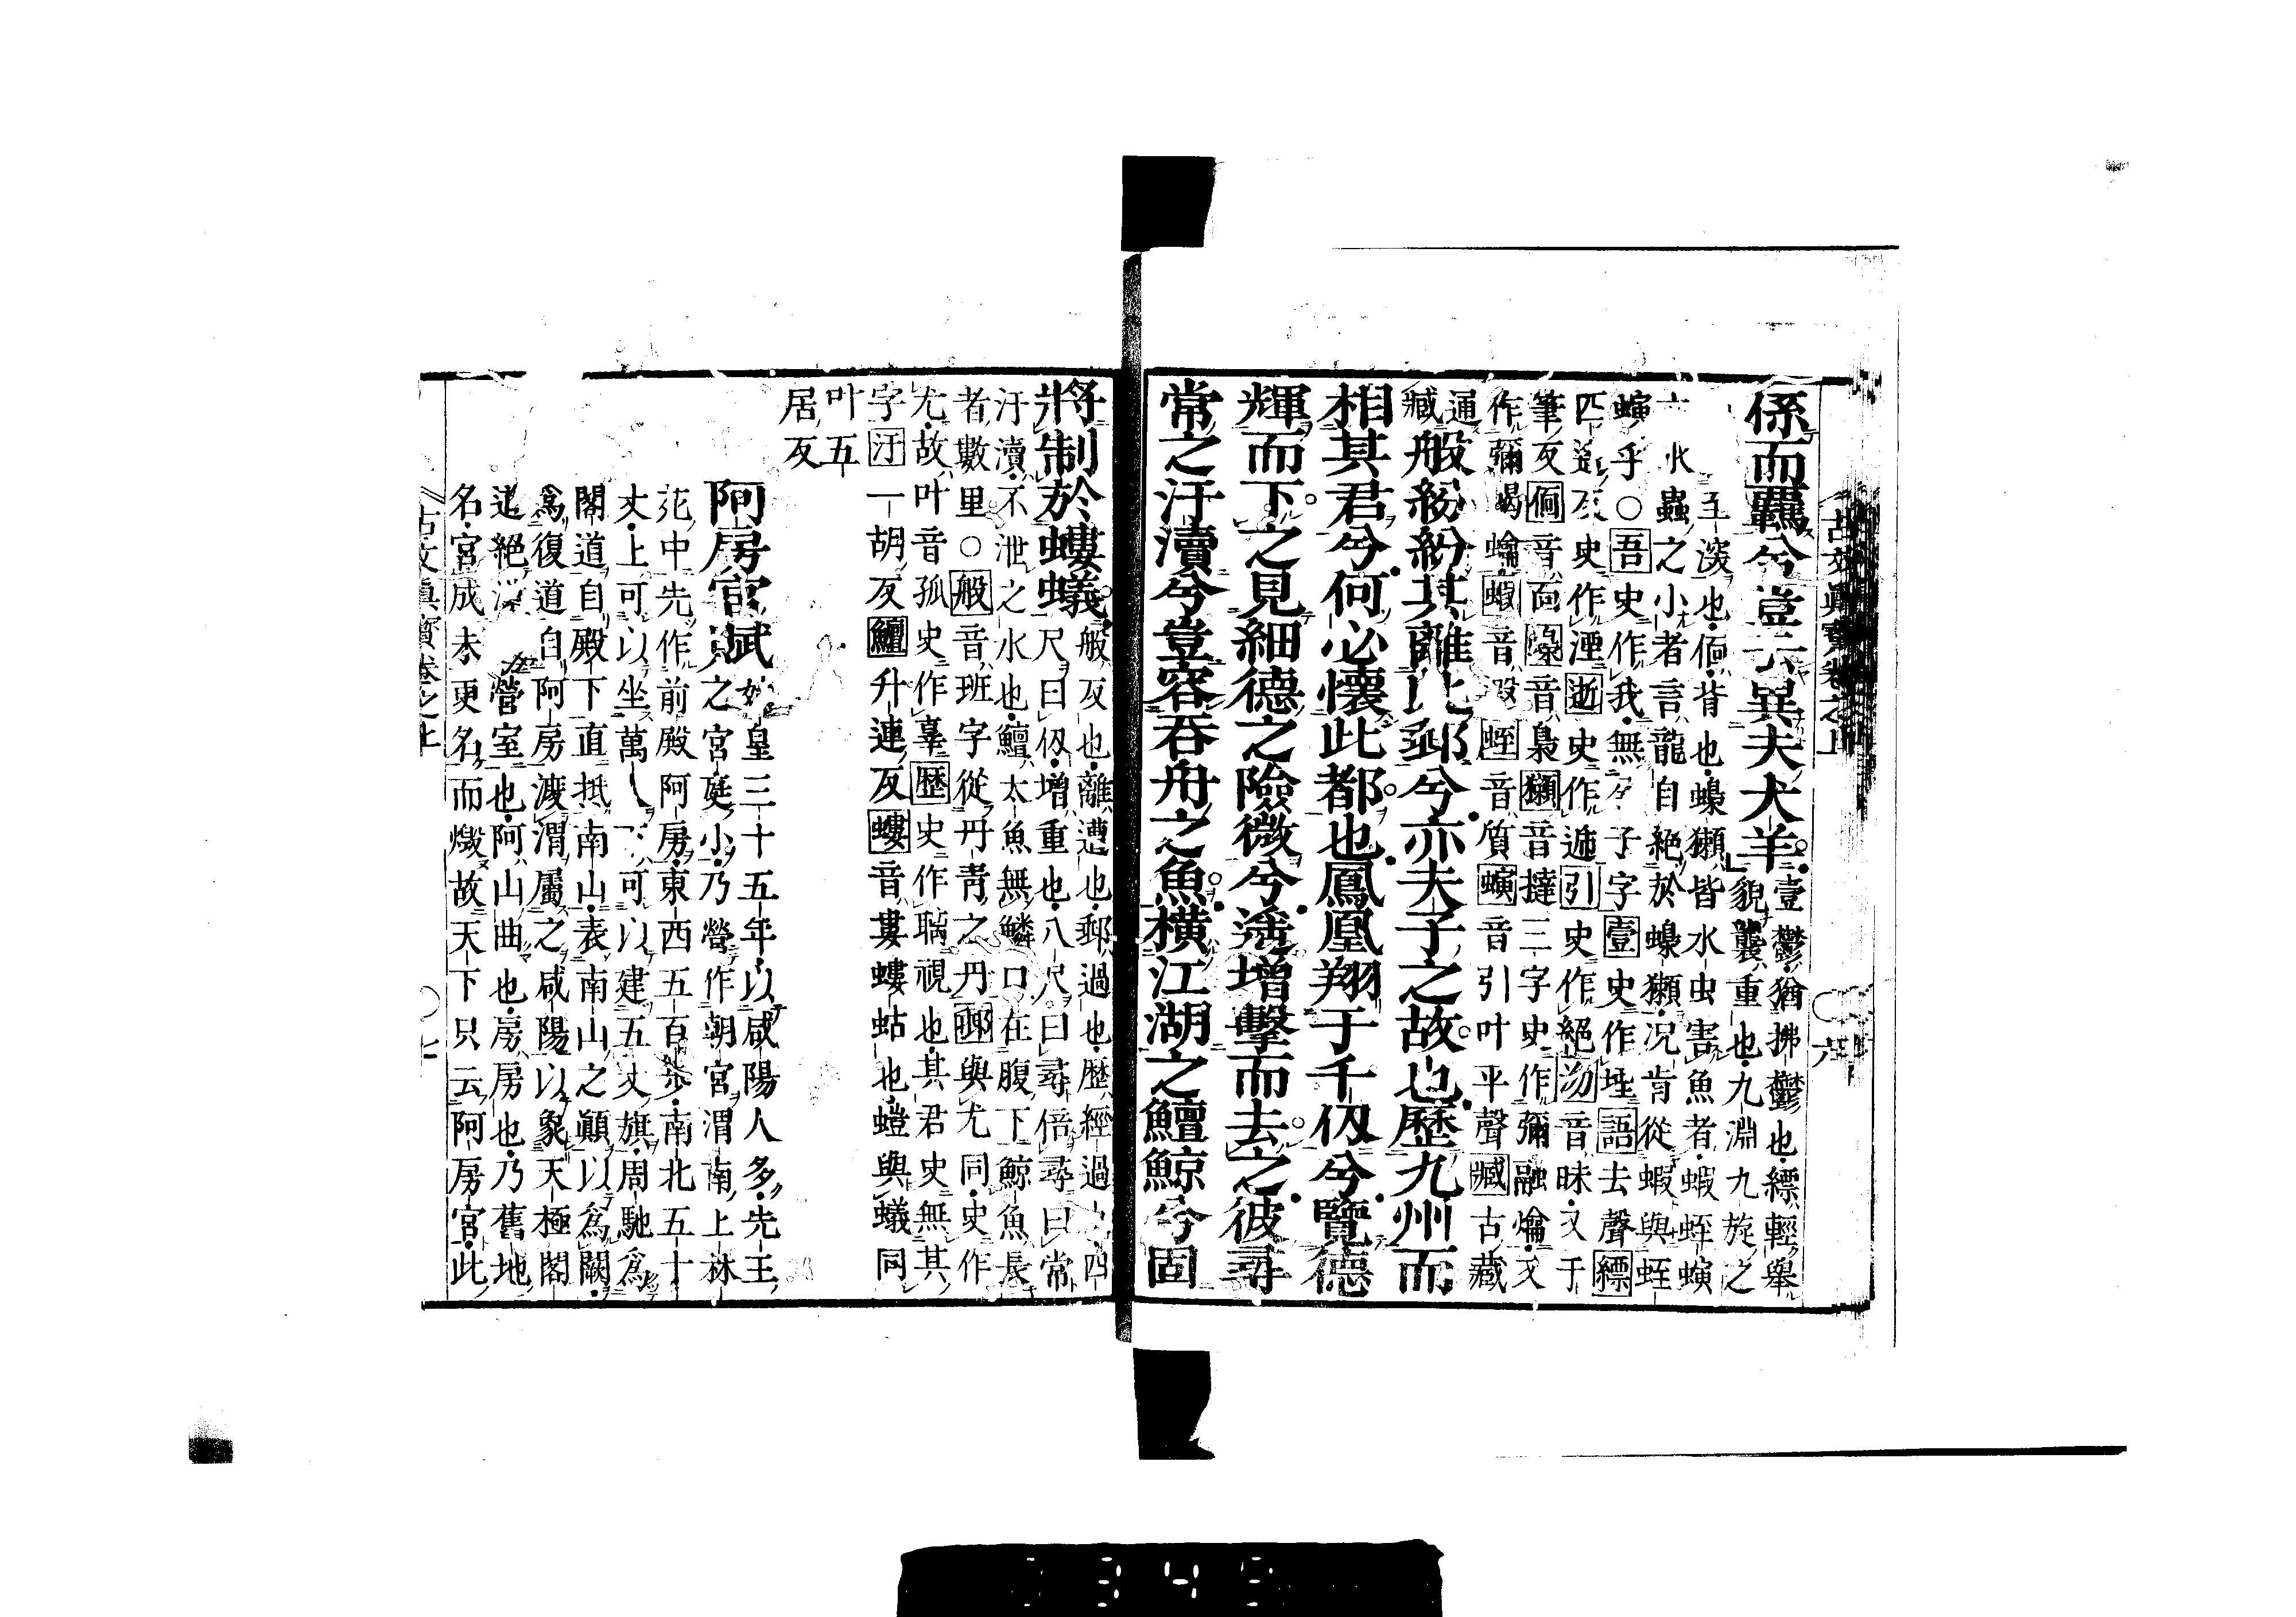 古文眞寳卷之上
六
係而羈兮豈云異夫犬羊壹鬱猶拂鬱也縹輕擧
貌襲重也九淵九旋之
至深也偭背也蟂獺皆水虫害魚者蝦蛭螾
水蟲之小者言龍自絕於蟂獺况肯從蝦與蛭
螾乎○吾史作我無兮子字壹史作堙語去聲縹
四遥反史作湮逝史作遰引史作絕沕音昧又于
筆反偭音面蟂音梟獺音撻三字史作彌融爚又
作彌蝎蜦蝦音遐蛭音質螾音引叶平聲臧古藏
通
臧般紛紛其離此郵兮亦夫子之故也歷九州而
相其君兮何必懷此都也鳳凰翔于千仭兮覽德
輝而下之見細德之險微兮遥增擊而去之彼尋
常之汙瀆兮豈容吞舟之魚橫江湖之鱣鯨兮固
將制於螻蟻般反也離遭也郵過也歷經過也四
尺曰仭增重也八尺曰尋倍尋曰常
汙瀆不泄之水也鱣太魚無鱗口在腹下鯨魚長
者數里○般音班字從丹靑之丹郵與尤同史作
尤故叶音孤史作辜歷史作瑞視也其君史無其
字汙一胡反鱣升連反螻音婁螻蛄也螘與蟻同
叶五
居反
阿房宮賦始皇三十五年以咸陽人多先王
之宮庭小乃營作朝宮渭南上林
苑中先作前殿阿房東西五百步南北五十
丈上可以坐萬人下可以建五丈旗周馳爲
閣道自殿下直抵南山表南山之顚以爲闕
爲復道自阿房渡渭屬之咸陽以象天極閣
道絕漢 營室也阿山曲也房房也乃舊地
名宮成未更名而燬故天下只云阿房宮此
古文眞寳卷之上
七